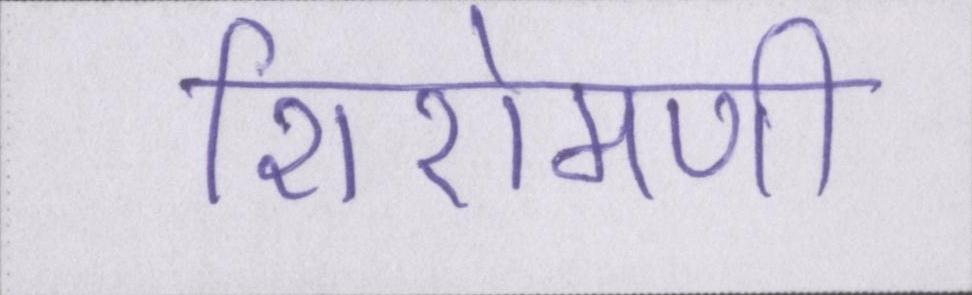 शिरोमणी